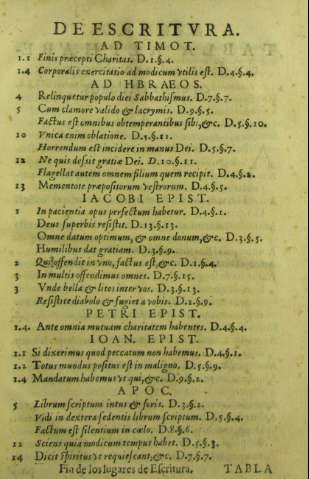 DE ESCRITVRA.
AD TIMOT.
1.1 Finis præcepti Charitas. D.1.§.4.
1.4 Corporalis exercitatio ad modicum vtilis est. D.4.§.4.
AD HBRAEOS.
4 Relinquetur populo dei Sabbathismus. D.7.§.7.
5 Cum clamore valido & lacrymis. D.9.§.5.
Factus est omnibus obtemperantibus sibi, &c. D.5.§.10.
10 Vnica enim oblatione. D.5.§.11.
Horrendum est incidere in manus Dei. D.5.§.7.
12 Ne quis desit gratiæ Dei. D.10.§.11.
Flagellat autem omnem filium quem recipit. D.4.§.2.
13 Mementote præpositorum vestrorum. D.4.§.5.
IACOBI EPIST.
1 In pacientia opus perfectum habetur. D.4.§.1.
Deus superbis resistit. D.13.§.13.
Omne datum optimum, & omne donum, &c. D.3.§.5.
Humilibus dat gratiam. D.3.§.9.
2 Qui offendit in vno, factus est, &c. D.1.§.4.
3 In multis offendimus omnes. D.7.§.15.
3 Vnde bella & lites inter vos. D.3.§.13.
Resistite diabolo & fugiet a vobis. D.2.§.9.
PETRI EPIST.
1.4. Ante omnia mutuam charitatem habentes. D.4.§.4.
IOAN. EPIST.
1.1 Si dixerimus quod peccatum non habemus. D.4.§.1.
1.2 Totus mundus positus est in maligno. D.5.§.9.
1.4 Mandatum habemus vt qui, &c. D.9.§.2.
APOC.
5 Librum scriptum intus & foris. D.3.§.2.
Vidi in dextera sedentis librum scriptum. D.5.§.4.
Factum est silentium in cælo. D.8.§.6.
12 Sciens quia modicum tempus habet. D.5.§.3.
14 Dicit spiritus vt requiescant, &c. D.7.§.7.
Fin de los lugares de Escritura. TABLA